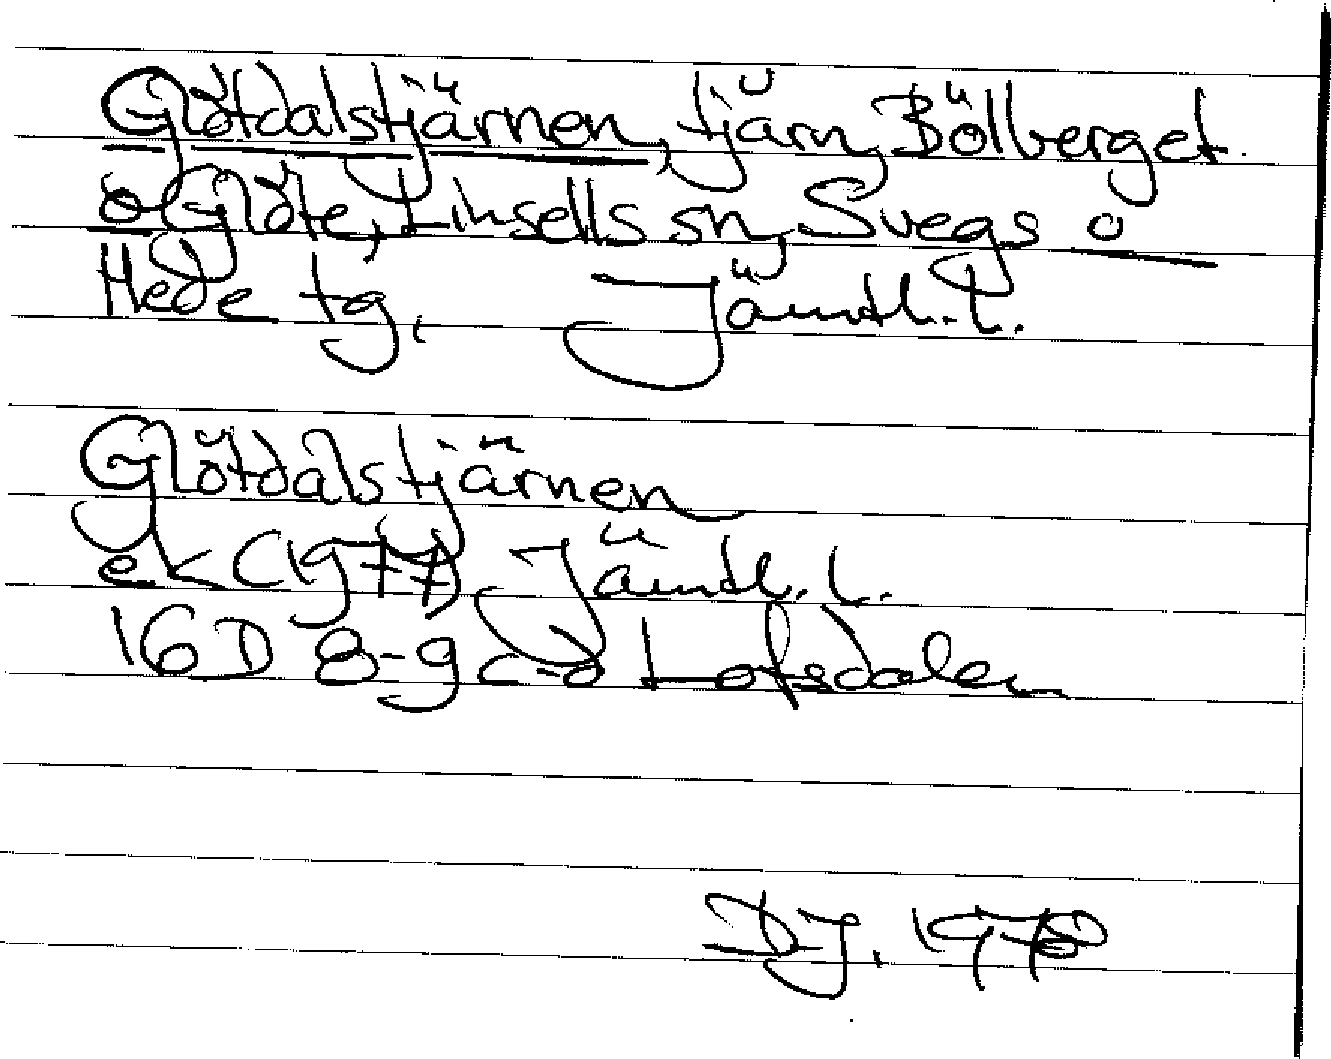 Glötdalstjärnen, tjärn, Bölberget
o Glöte, Linsells sn, Svegs o
Hede tg, Jämtl. l.
Glötdalstjärnen
ek (1977) Jämtl. l.
16D 8-9 c-d Lofsdalen
DJ. 1978